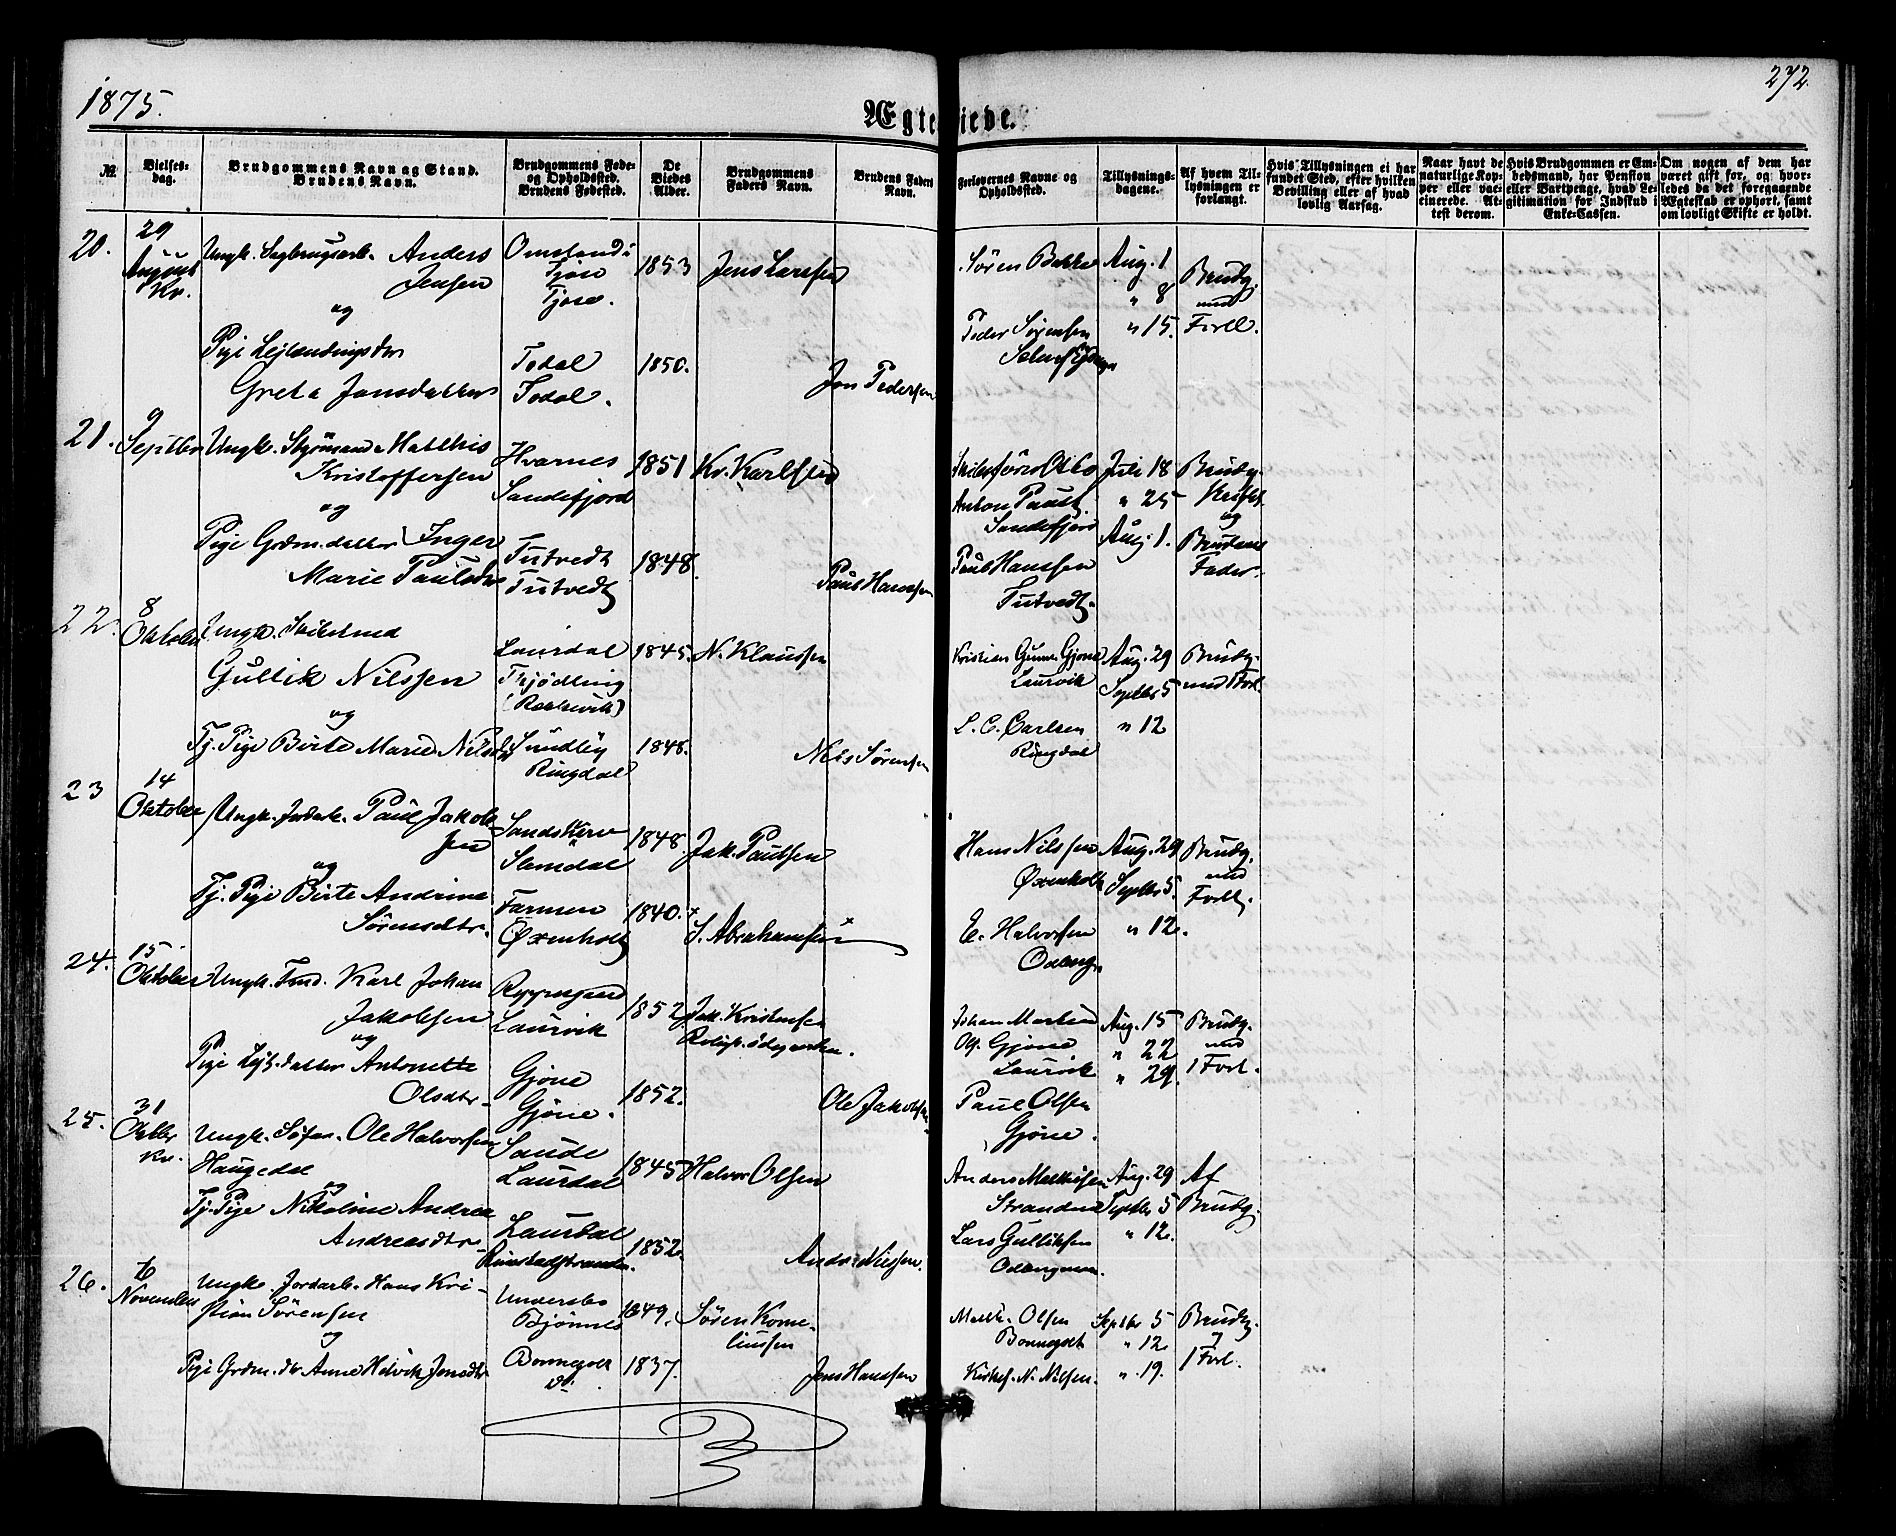 1875.
272.
Ægteviede.
№
Vielses-dag.
Brudgommens Navn og Stand.
Brudens Navn.
Brudgommens Føde-og Opholdssted.
Brudens Fødested.
De Viedes Alder.
Brudgommens Faders Navn.
Brudens Faders Navn.
Forlovernes Navne og Opholdsted.
Tillysnings-dagene.
Af hvem Til-lysningen er forlangt.
Hvis Tillysningen ei har fundet Sted, efter hvilken Bevilling eller af hvad lovlig Aarsag.
Naar havt de naturlige Kop-per eller vac-cinerede. At-test derom.
Hvis Brudgommen er Em-bedsmand, har Pension eller Vartpenge, hvad Le-gitimation for Indskud i Enke-Cassen.
Om nogen af dem har været gift for, og hvor-ledes da det foregaaende Ægteskab er ophørt, samt om lovligt Skifte er holdt.
20.
29
August
Kv.
Ungk. Sagbrugsarb. Anders
Jensen
og
Pige Lejlændingsdtr
Grete Jonsdatter
Tjose
Tjose.
Todal
Todal.
1853
1850.
Jens Larssen
Jon Pedersen
Søren Bakke
Peder Sørensen
Aug. 1
" 8
" 15.
Brudg.
med
Forll.
21.
9
Septbr
Ungk. Styrmand Matthis
Kristoffersen
og
Pige Grdm. datter Inger
Marie Paulsdtr
Hvarnes
Sandefjord
Tutvedt
Tutvedt
1851
1848.
Kr. Karlsen
Paul Hanssen
Anton Paust
Sandefjord
Paul Hanssen
Tutvedt.
Juli 18
" 25
Aug. 1.
Brudg.
og
Brudens
Fader.
22.
8
Oktober
Ungk.
Gullik Nilssen
og
Tj. Pige Birte Marie Nilsdtr
Laurdal
Thjødling
(Rækkevik)
Sundby
Ringdal
1845.
1848.
N. Klaussen
Nils Sørensen
Kristian Gjone
Laurvik
L. C. Carlsen
Ringdal
Aug. 29
Septbr 5
" 12
Brudg.
med Forl.
23
14
Oktober
Ungk. Jordarb. Paul Jakob
sen
og
Tj. Pige Birte Andrine
Sørensdtr.
Slemdal
Farmen
Øxenholt
1848.
1840.
Jak. Paulsen
S. Abrahamsen
Hans Nilssen
Øxenholt
E. Halvorsen
Odberg
Aug. 29
Septbr 5.
" 12.
Brudg.
med
Forll.
24.
15
Oktober
Ungk. Karl Johan
Jakobsen
og
Pige datter Antonette
Olsdtr.
Laurvik
Gjone
Gjone.
1852
1852.
Jak. Kristensen
Ole Jakobsen
Johan Martin
Gjone
Laurvik
Paul Olsen
Gjone.
Aug. 15
" 22
" 29.
Brudg.
med
1 Forl.
25.
31
Oktbr
Kv.
Ungk. Ole Halvorsen
Haugedal
og
Tj. Pige Nikoline Andrea
Andreasdtr.
Sande
Laurdal
Laurdal
1845
1852.
Halvor Olsen
Andr. Nilssen.
Anders Mathisen
Stranden
Lars Gulliksen
Aug. 29
Septbr 5
" 12.
Af
Brudg.
26.
6
November
Ungk. Jordarb. Hans Kri-
stian Sørensen
og
Pige Grdm. dtr Anne Helvik Jensdtr
Undersbo
Bjønnes
Bonnegolt
do.
1849.
1837.
Søren Korne-
liussen
Jens Hanssen
Math. Olsen
Bonnegolt
Kristof. N. Nilsen.
Septbr 5
" 12
" 19.
Brudg.
og
1 Forl.